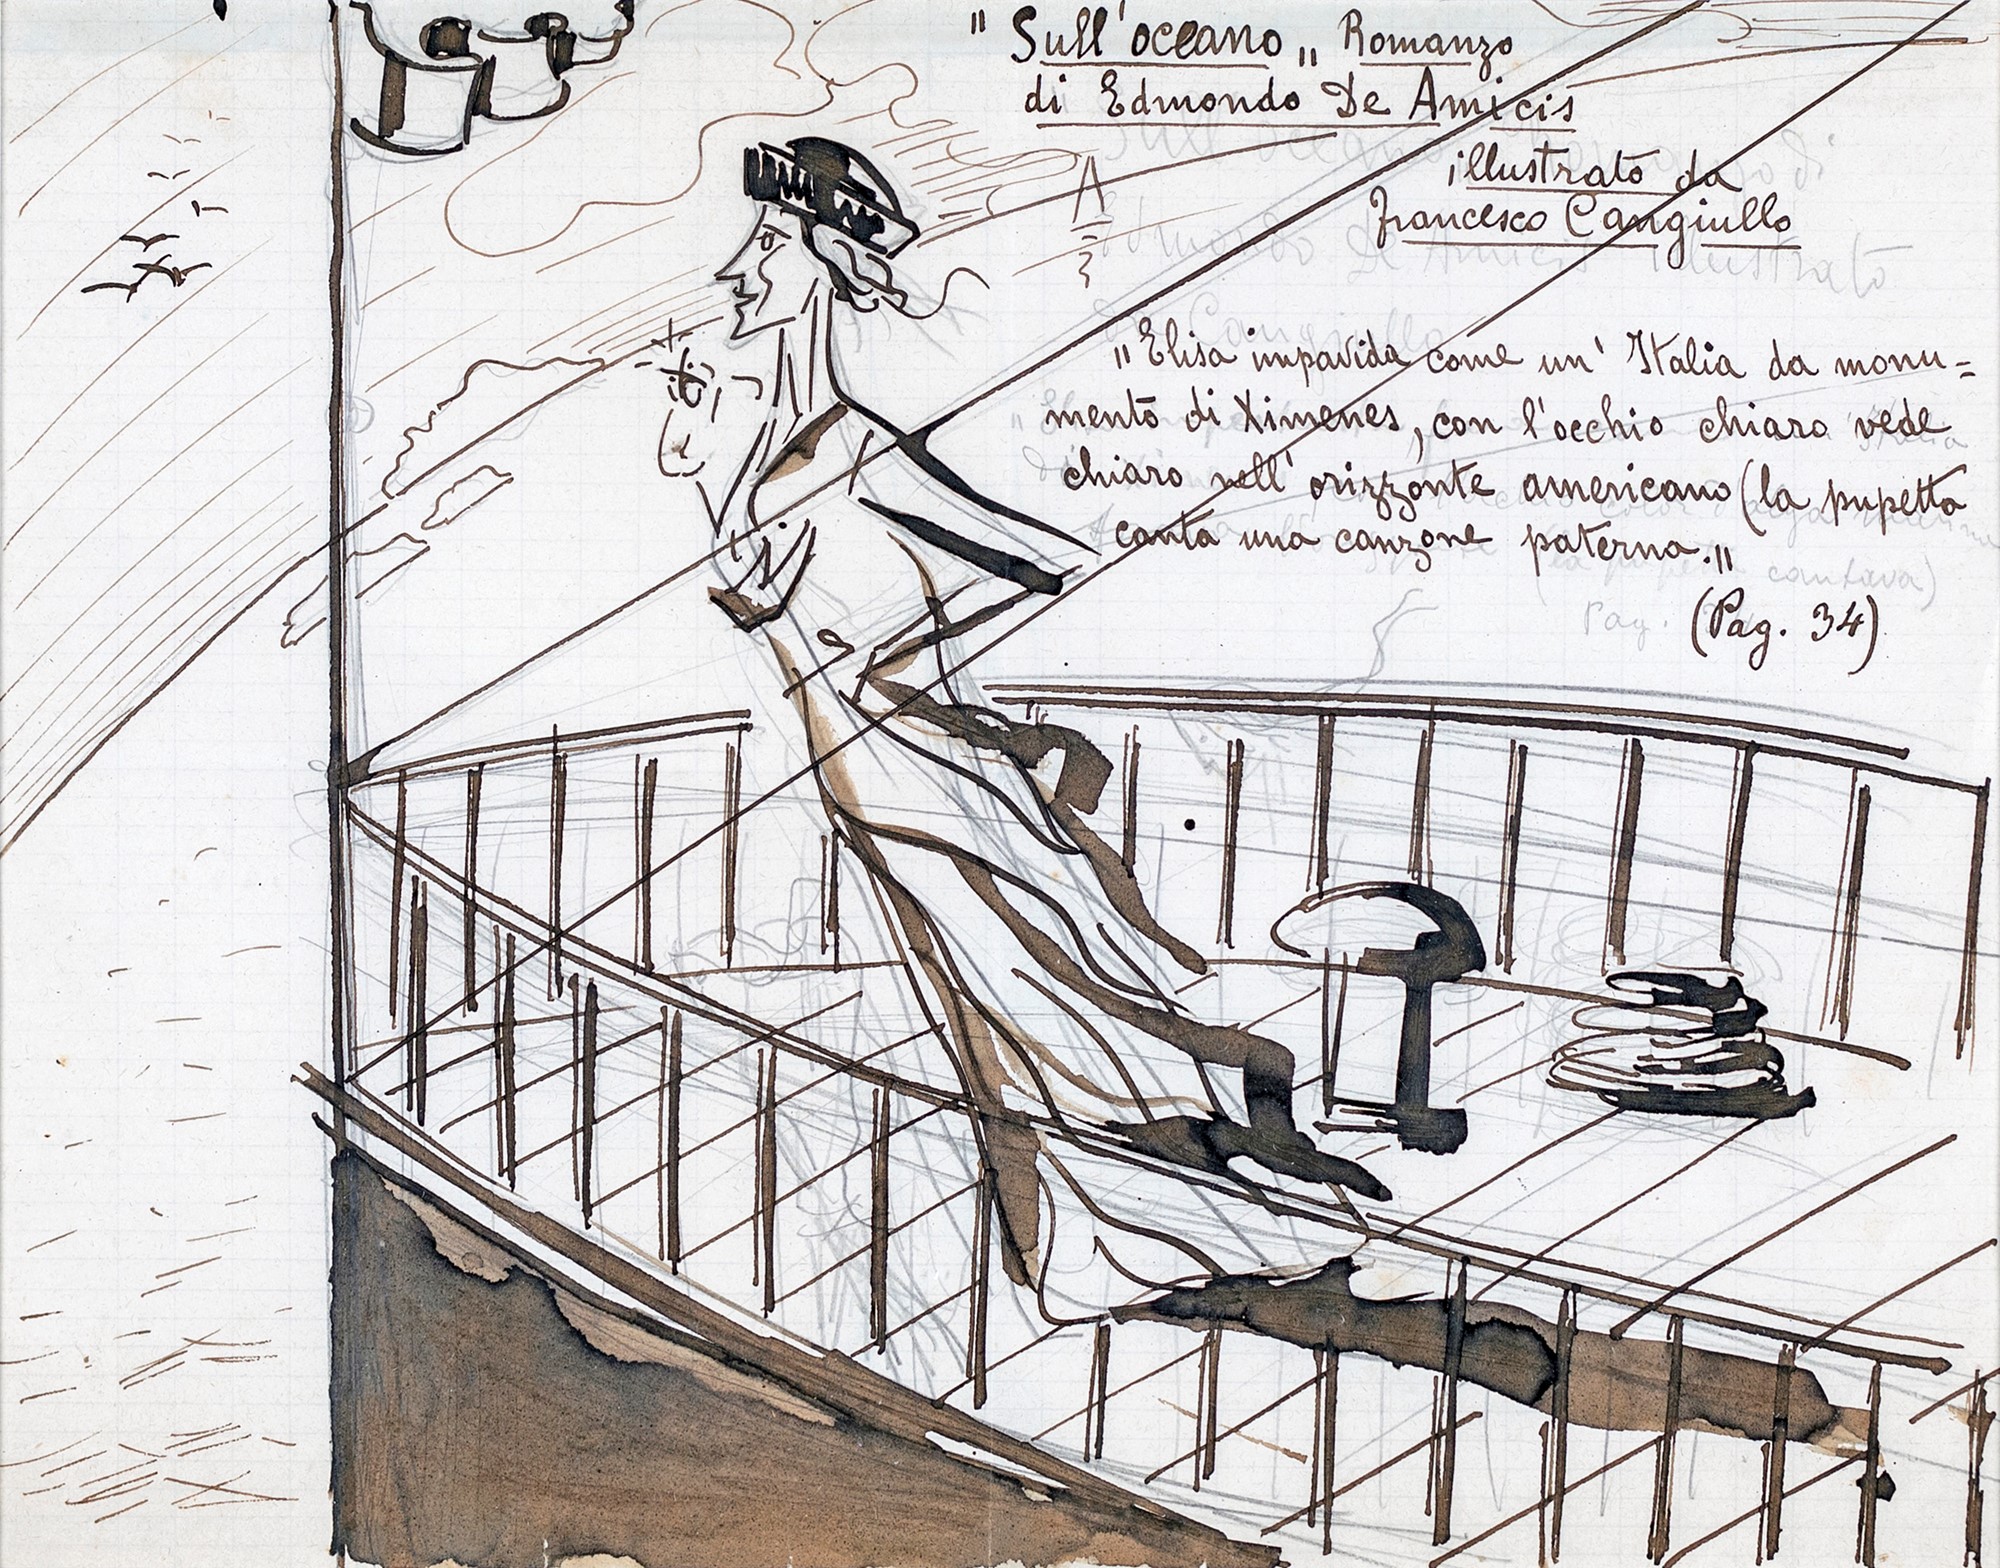 " Sull'oceano „ Romanzo
di Edmondo De Amicis
illustrato da
Francesco Cangiullo
"Elisa impavida come un' Italia da monu=
mento di Ximenes, con l'occhio chiaro vede
chiaro nell' orizzonte americano (la pupetta
canta una canzone paterna."
(Pag. 34)